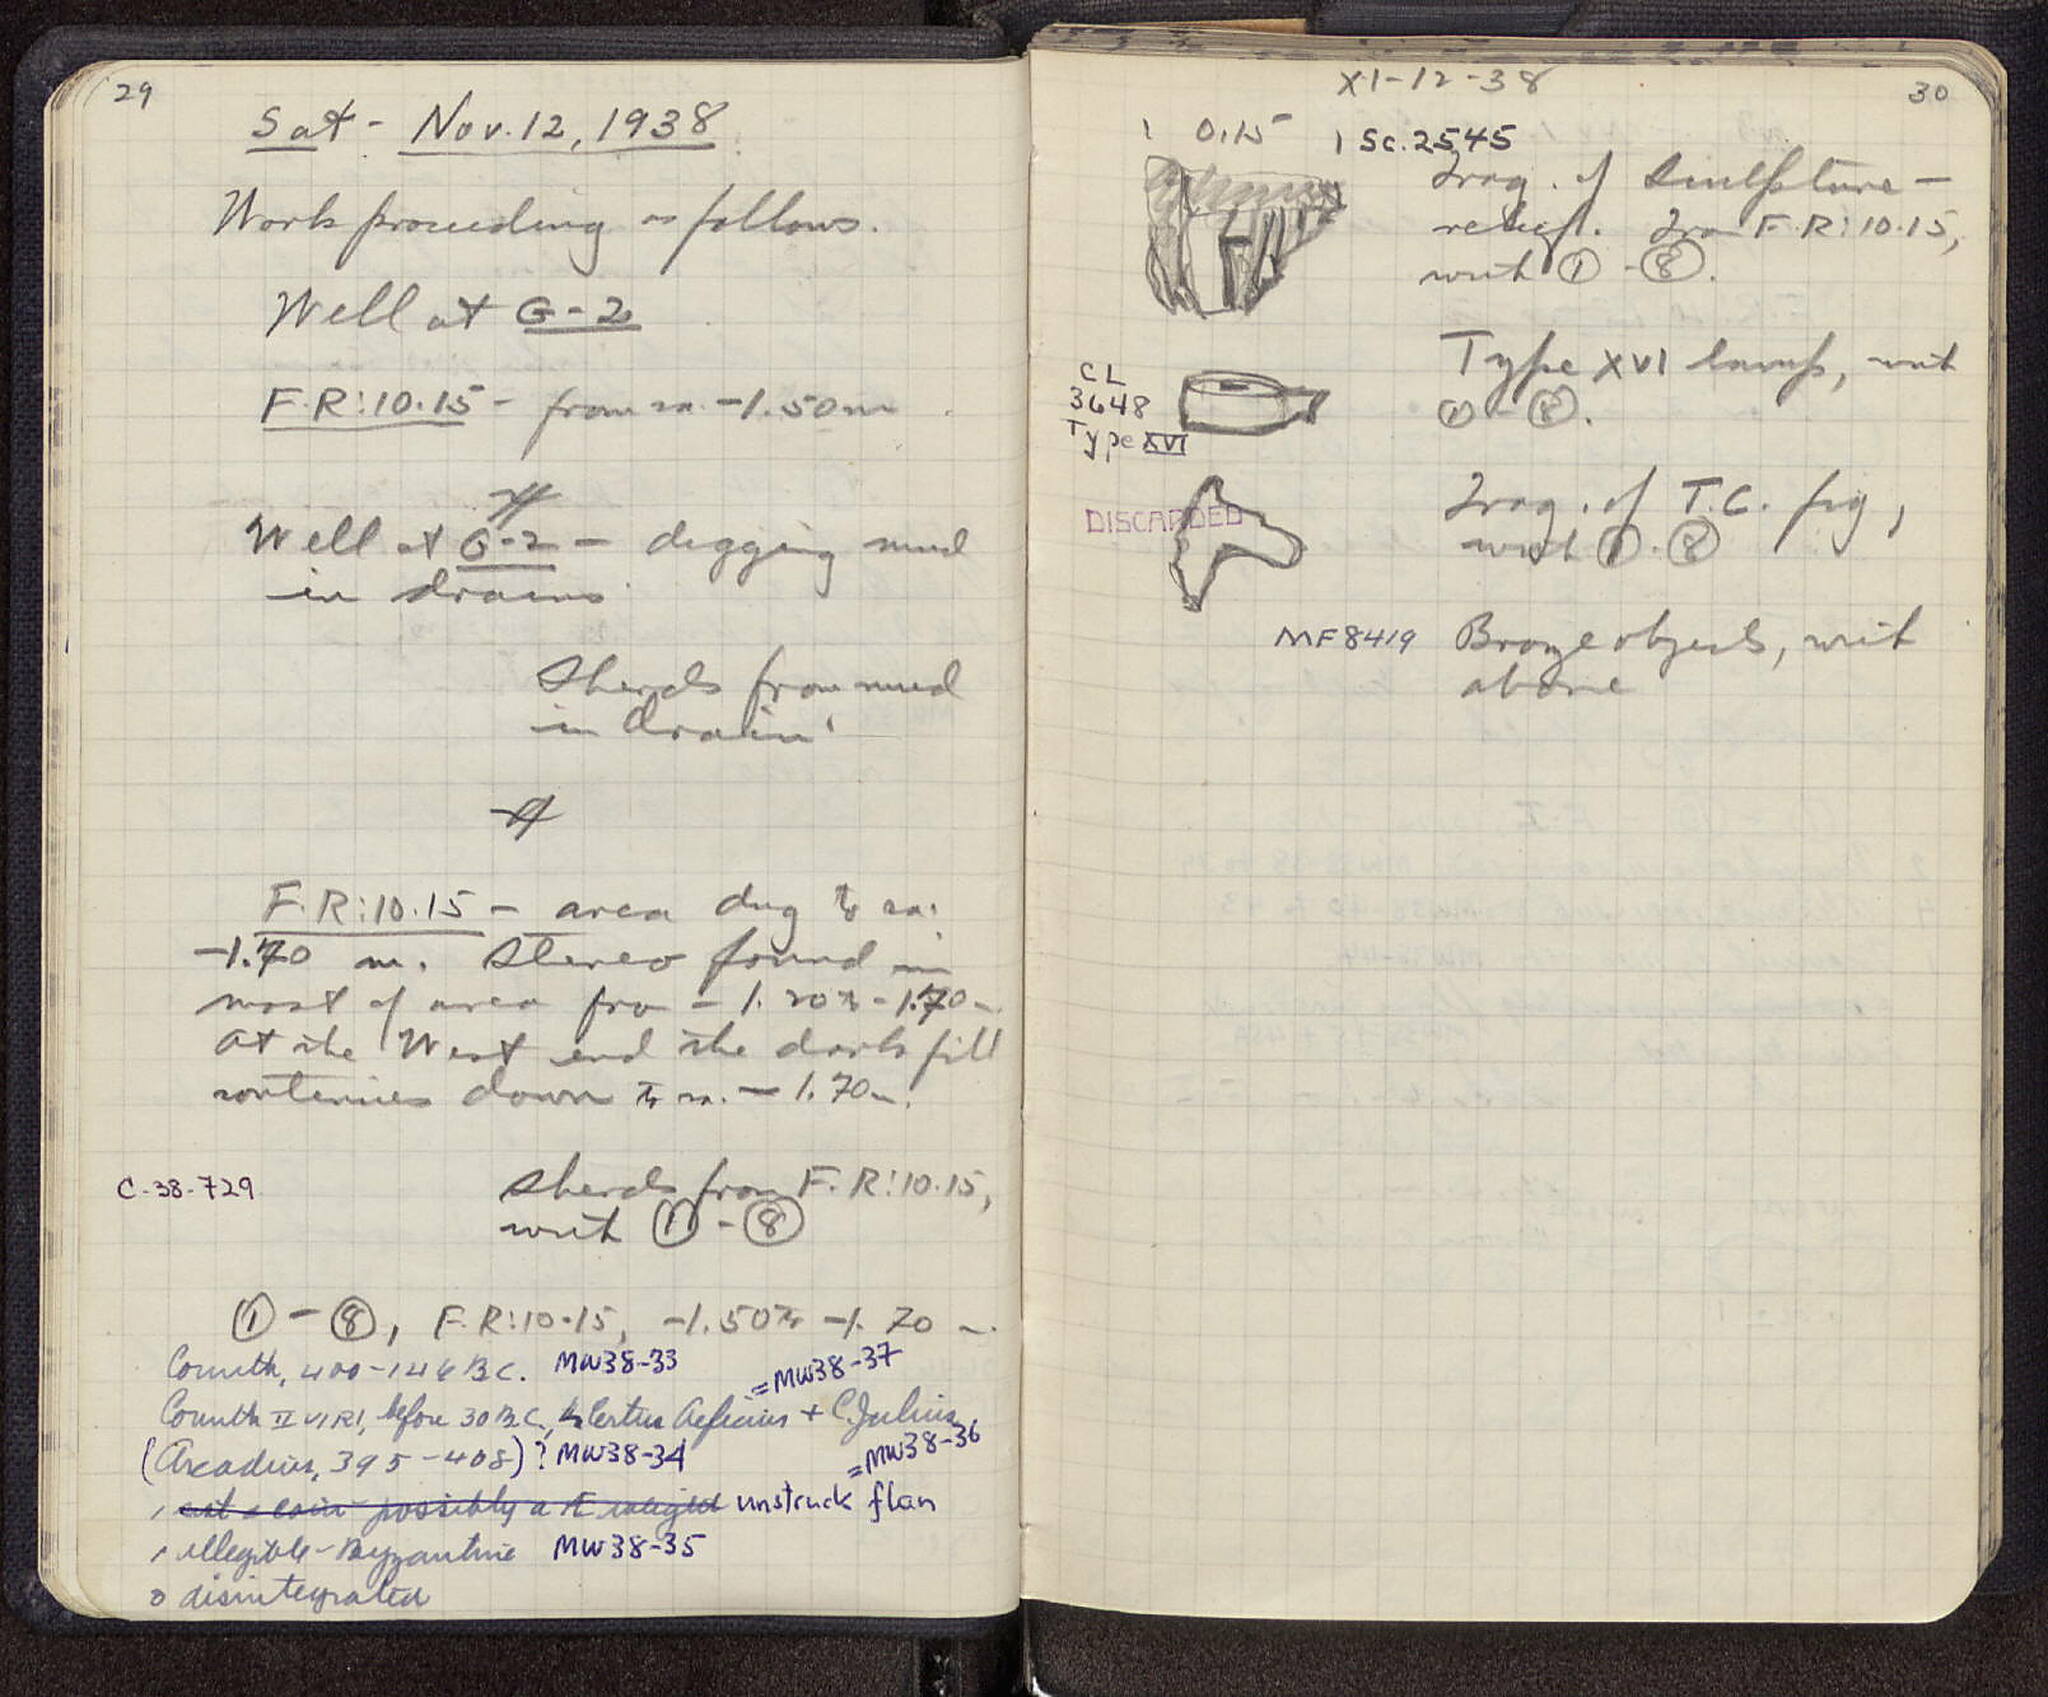 29
Sat - Nov. 12, 1938
Work proceeding as follows.
Well at G-2
F.R:10.15 - from ca. -1.50m
Well at G-2 - digging mud
in drains
Sherds from mud
in drain
F.R:10.15 - area dug to ca.
-1.70 m. Stereo found in
most of area from -1.20 to -1.70 m.
At the West end the dark fill
continues down to ca. -1.70m.
C-38-729
Sherds from F.R:10.15,
with ① - ⑧
① - ⑧, F.R:10.15, -1.50 to -1.70 m.
Corinth, 400-146 B.C. MW38-33
=MW38-37
Corinth II VIRI, before 30 B.C., Certus Aeficius + C. Julius
(Arcadius, 395-408)? MW38-34
=MW38-36
1 not a coin possibly a unstruck flan
1 illegible - Byzantine MW38-35
3 disintegrated
XI-12-38
30
0.15
1 Sc. 2545
Frag. of Sculpture -
relief. From F.R:10.15,
with ① - ⑧.
CL
3648
Type XVI
Type XVI lamp, with
① - ⑧.
DISCARDED
Frag. of T.C. fig,
with ① - ⑧
MF8419
Bronze objects, with
above